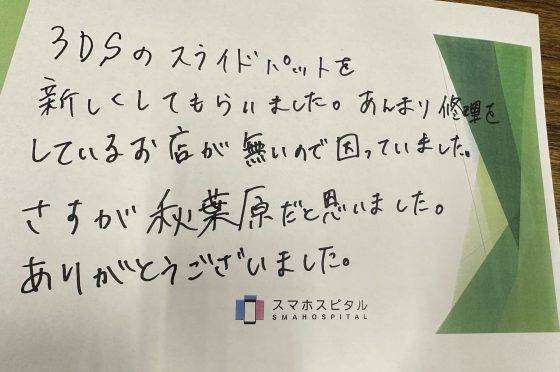 3DSのスライドパットを
新しくしてもらいました。あんまり修理を
しているお店が無いので困っていました。
さすが秋葉原だと思いました。
ありがとうございました。
スマホスピタル
SMAHOSPITAL